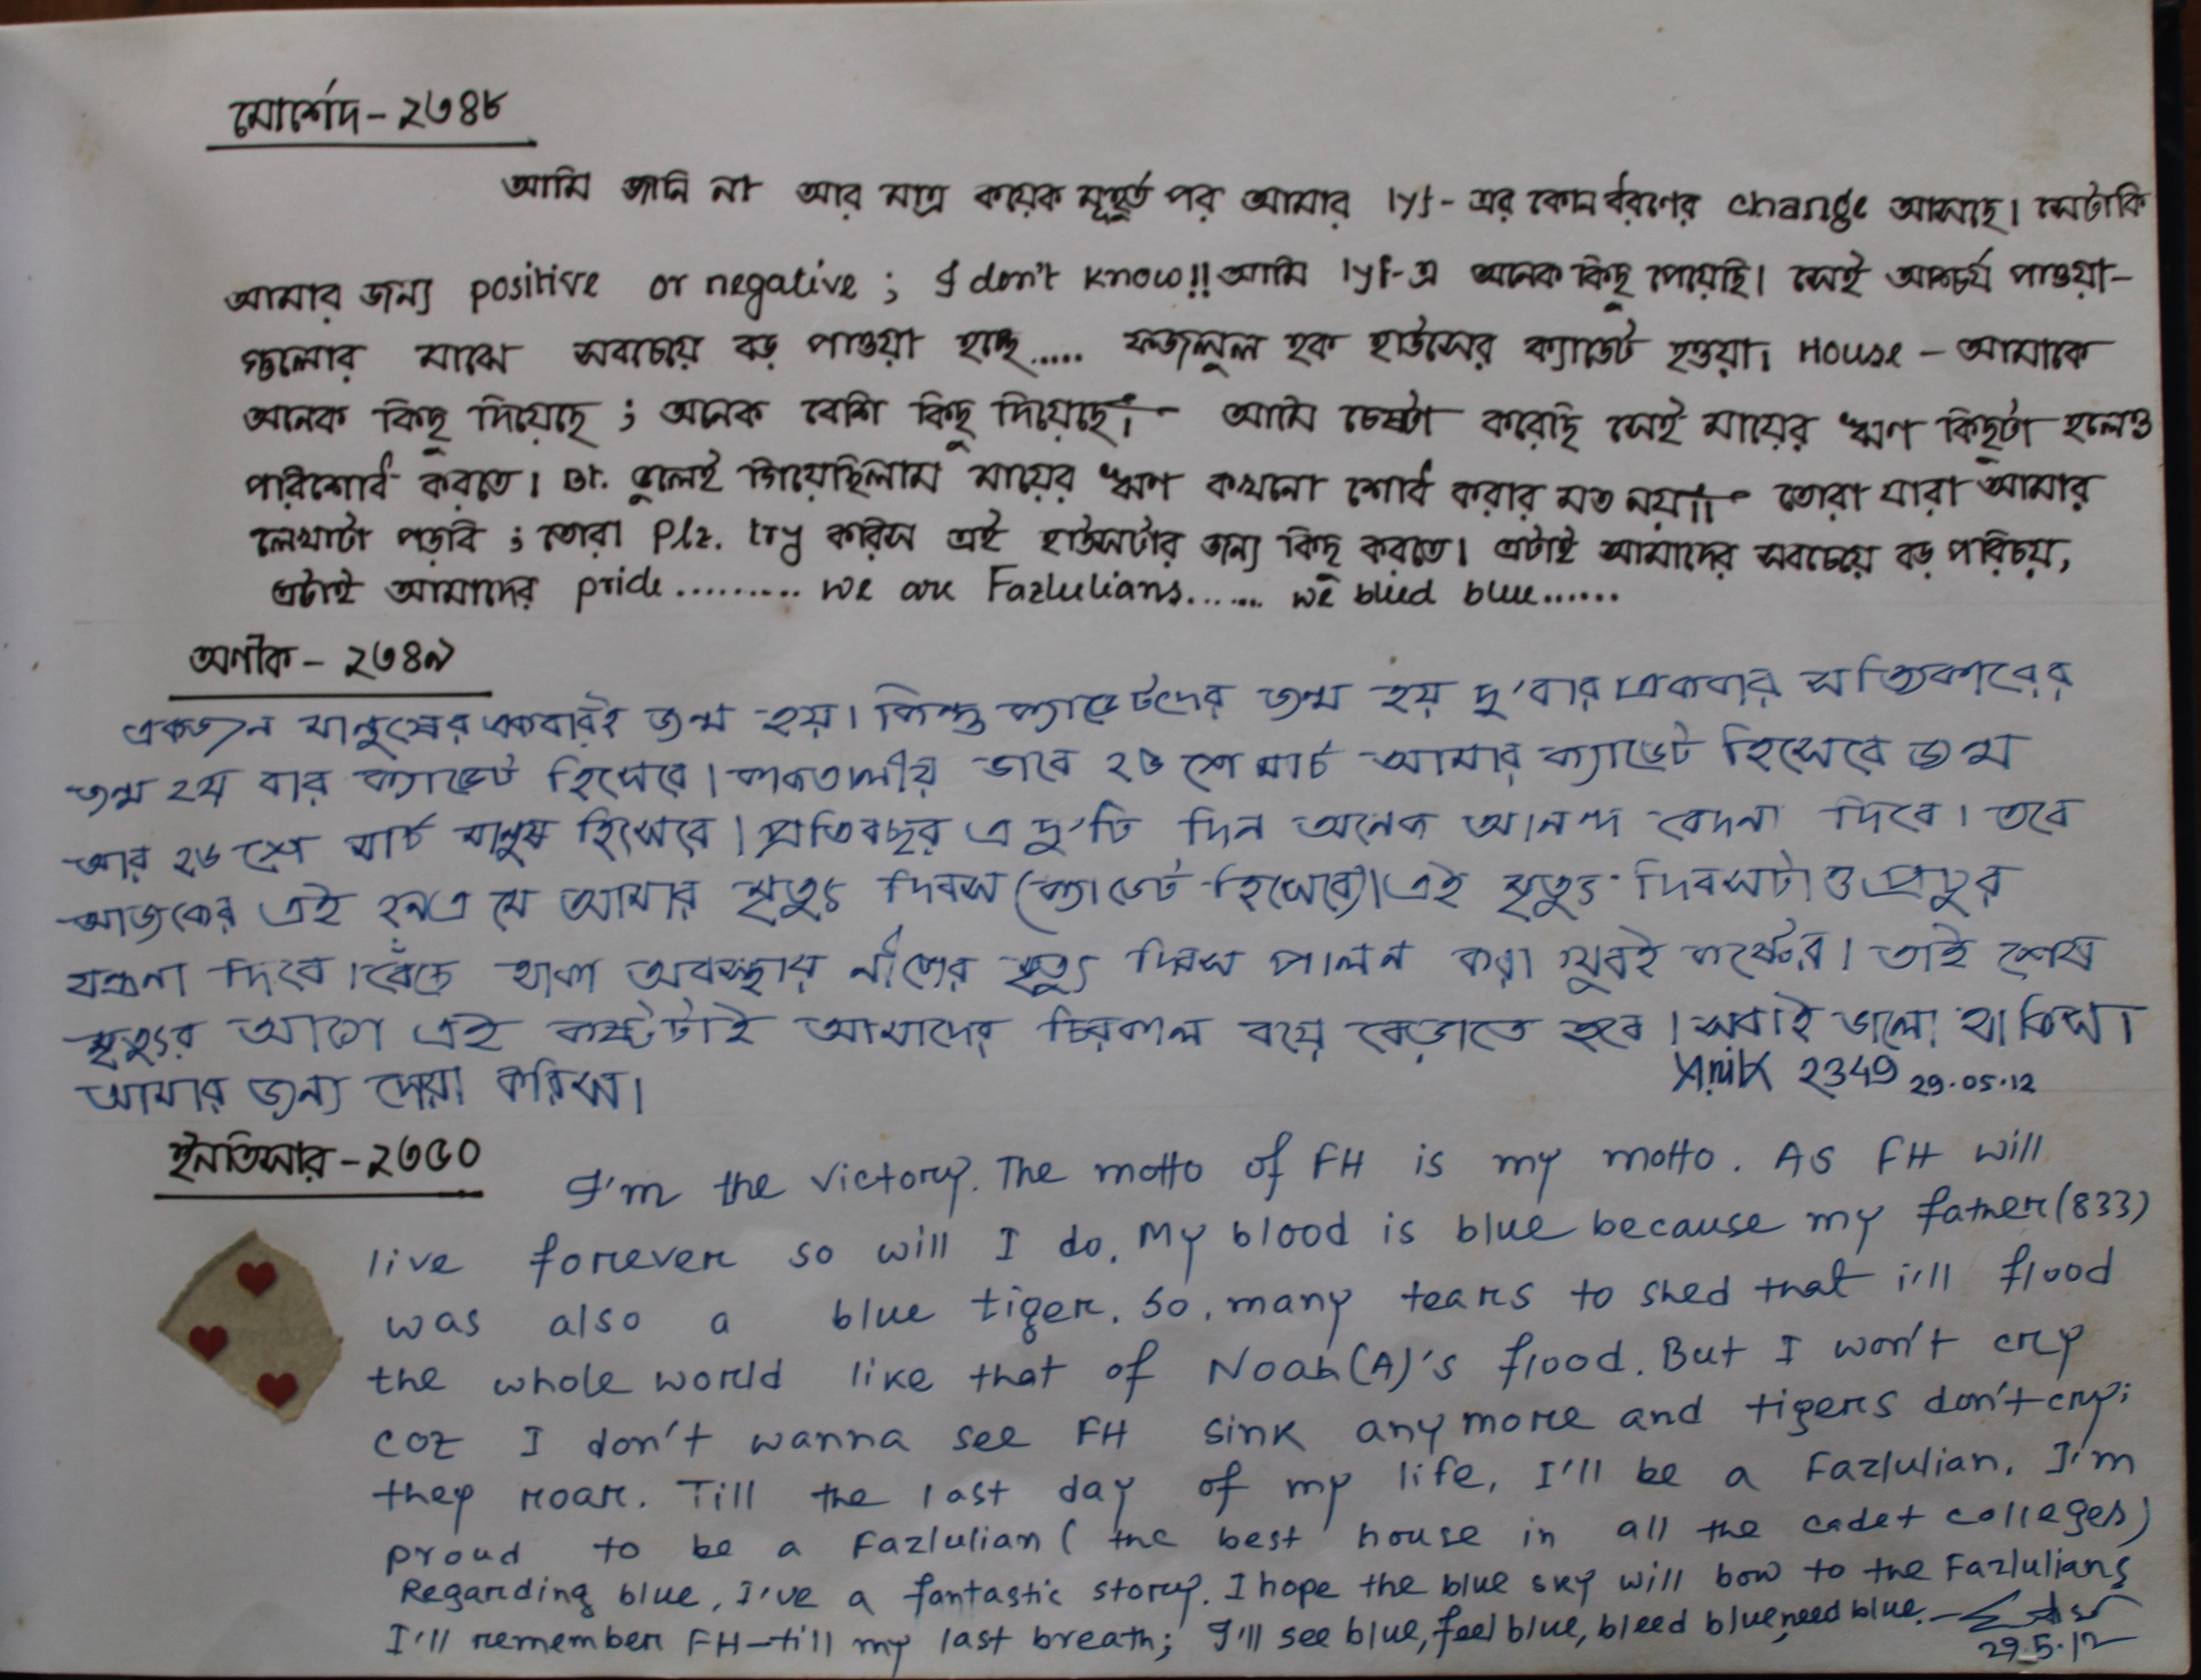 মোর্শেদ - ২৩৪৮
আমি জানি না আর মাত্র কয়েক মূহুর্ত পর আমার lyf - এর কোন ধরণের change আসছে। সেটা কি
আমার জন্য positive or negative ; I don't know!! আমি lyf-এ অনেক কিছু পেয়েছি। সেই আশ্চর্য পাওয়া-
গুলোর মাঝে সবচেয়ে বড় পাওয়া হচ্ছে..... ফজলুল হক হাউসের ক্যাডেট হওয়া। House - আমাকে
অনেক কিছু দিয়েছে ; অনেক বেশি কিছু দিয়েছে।- আমি চেষ্টা করেছি সেই মায়ের ঋণ কিছুটা হলেও
পরিশোধ করতে। Bt. ভুলেই গিয়েছিলাম মায়ের ঋণ কখনো শোধ করার মত নয়।। তোরা যারা আমার
লেখাটা পড়বি ; তোরা Plz. try করিস এই হাউসটার জন্য কিছু করতে। এটাই আমাদের সবচেয়ে বড় পরিচয়,
এটাই আমাদের pride.......... we are Fazlulians....... we bleed blue......
অণীক - ২৩৪৯
একজন মানুষের একবারই জন্ম হয়। কিন্তু ক্যাডেটদের জন্ম হয় দু'বার। একবার সত্যিকারের
জন্ম ২য় বার ক্যাডেট হিসেবে। কাকতালীয় ভাবে ২৬ শে মার্চ আমার ক্যাডেট হিসেবে জন্ম
আর ২৬ শে মার্চ মানুষ হিসেবে। প্রতিবছর এ দু'টি দিন অনেক আনন্দ বেদনা দিবে। তবে
আজকের এই ২৯এ মে আমার মৃত্যু দিবস (ক্যাডেট হিসেবে)। এই মৃত্যু দিবসটাও প্রচুর
যন্ত্রণা দিবে। বেঁচে থাকা অবস্থায় নীজের মৃত্যু দিবস পালন করা খুবই কষ্টের। তাই শেষ
মৃত্যুর আগে এই কষ্টটাই আমাদের চিরকাল বয়ে বেড়াতে হবে। সবাই ভালো থাকিস।
আমার জন্য দোয়া করিস।
Anik 2349 29.05.12
ইনতিসার - ২৩৫০
I'm the victory. The motto of FH is my motto. As FH will
live forever so will I do. My blood is blue because my father (833)
was also a blue tiger. So, many tears to shed that i'll flood
the whole world like that of Noah(A)'s flood. But I won't cry
coz I don't wanna see FH sink anymore and tigers don't cry;
they roar. Till the last day of my life, I'll be a Fazlulian. I'm
proud to be a Fazlulian (the best house in all the cadet colleges)
Regarding blue, I've a fantastic story. I hope the blue sky will bow to the Fazlulians
I'll remember FH-till my last breath; I'll see blue, feel blue, bleed blue, need blue. -
29.5.12